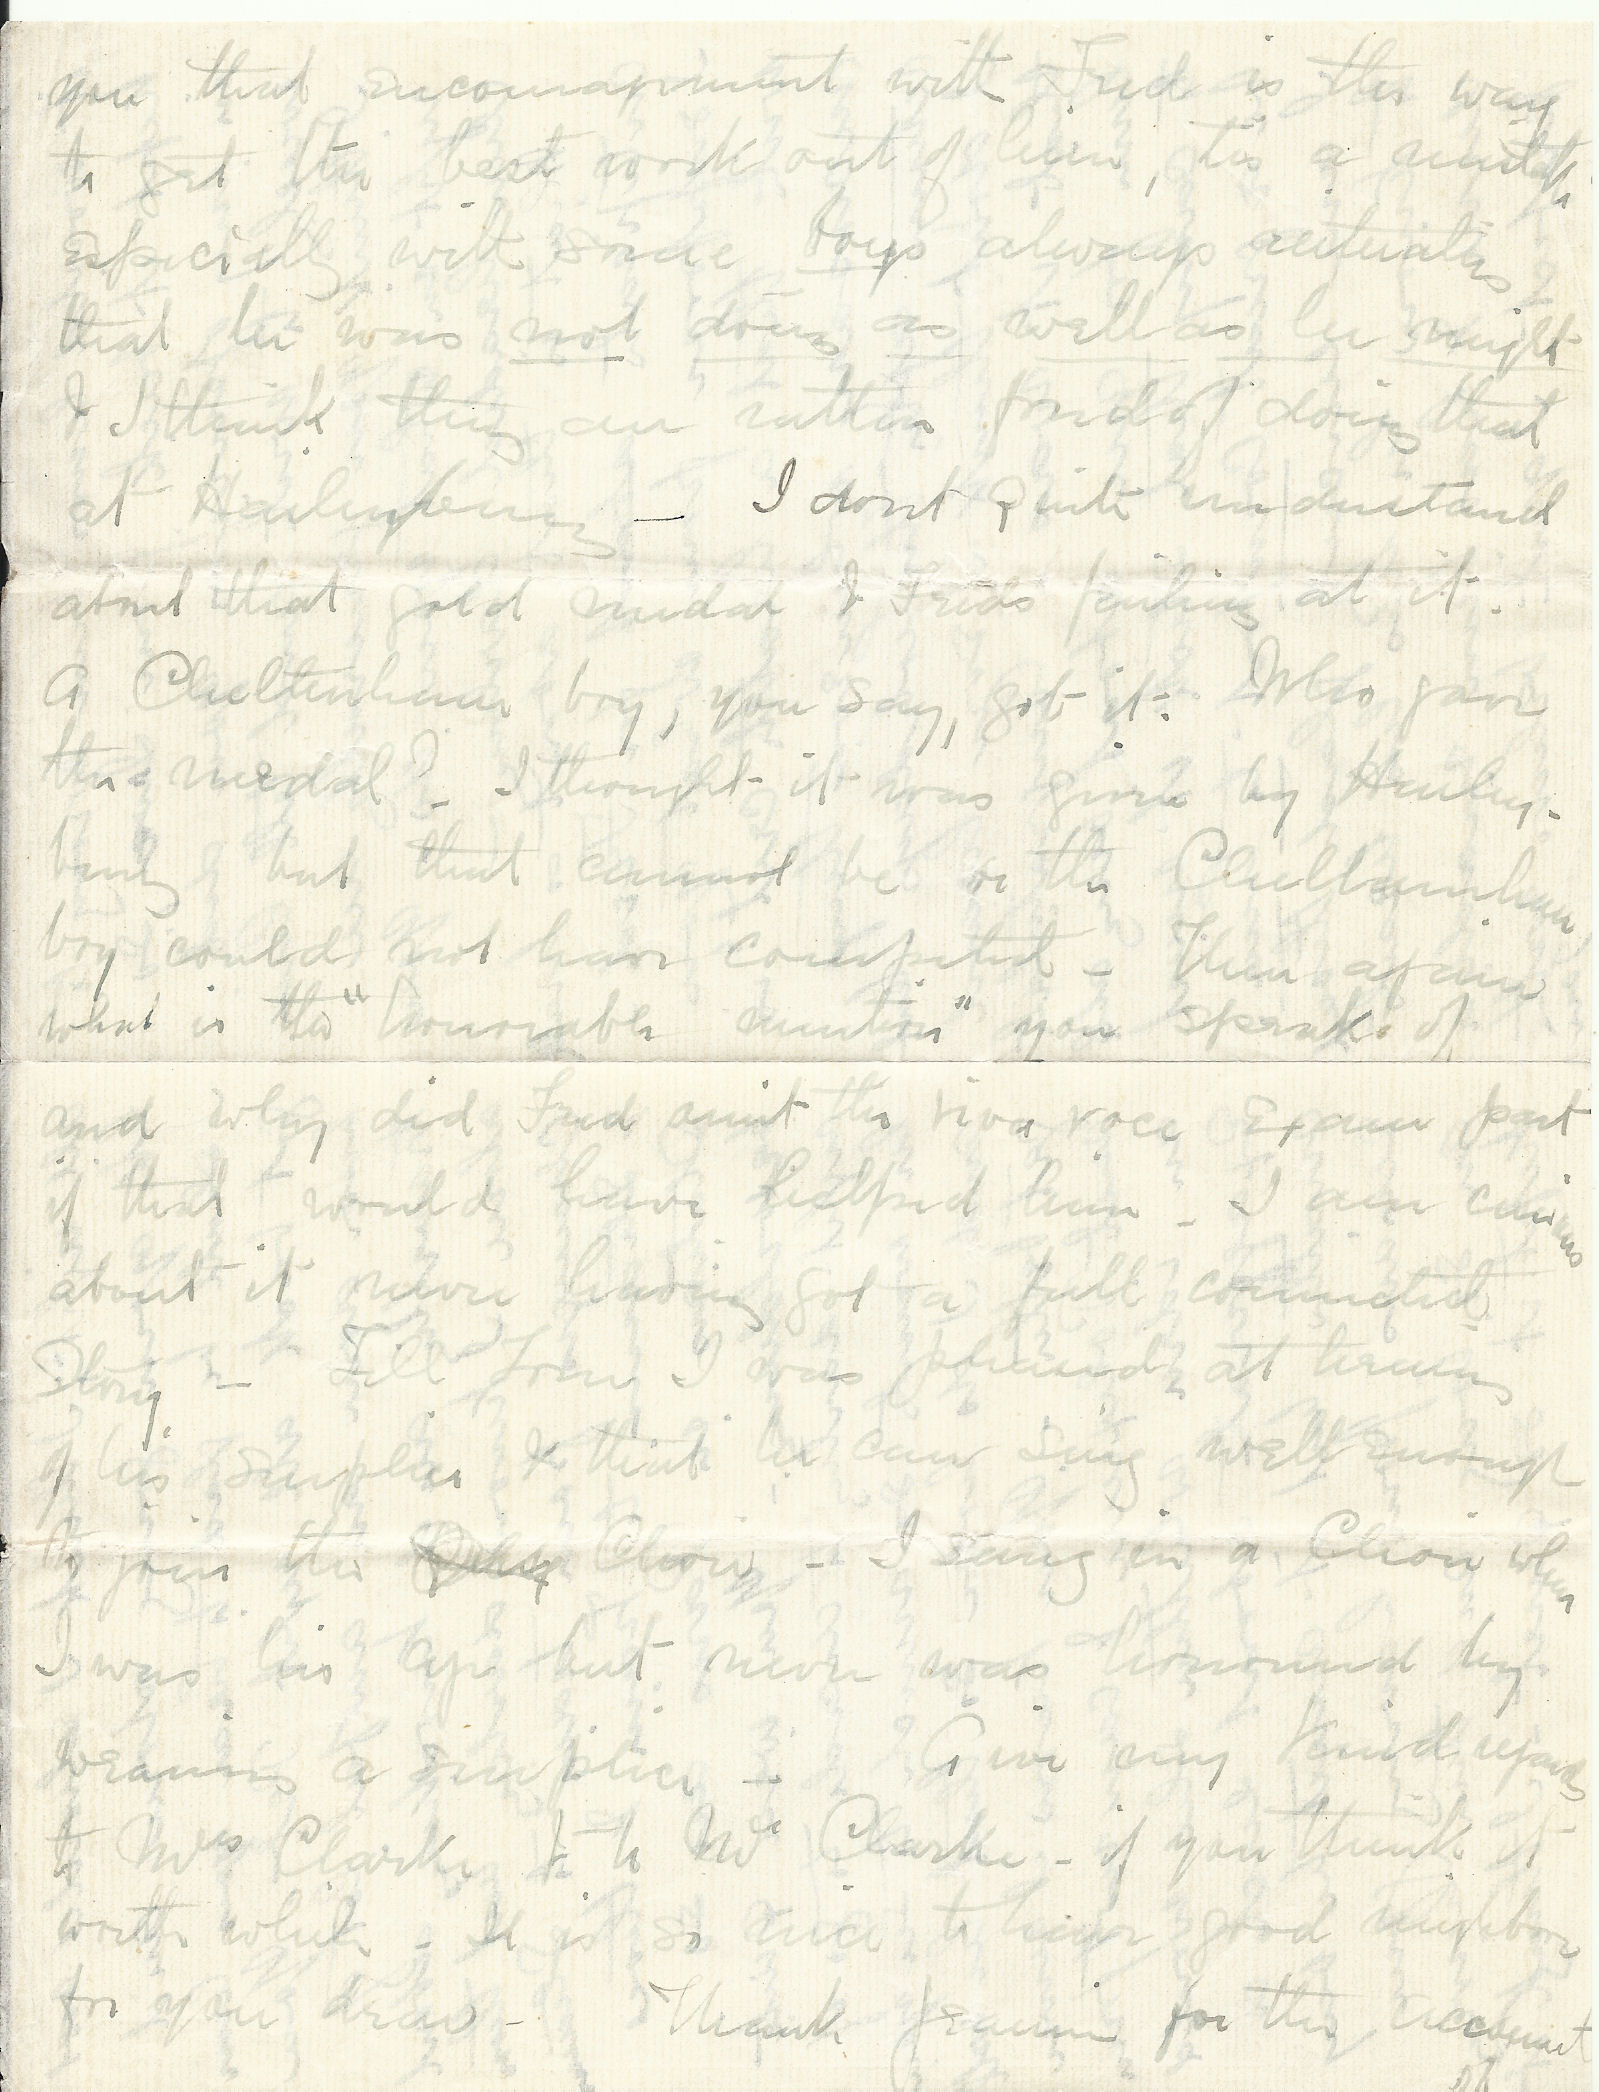 you that encouragement with Fred is the way
to get the best work out of him, tis a mistake
especially with some boys always reiterating
that he was not doing as well as he might
& I think they are rather fond of doing that
at Haileybury — I dont quite understand
about that gold medal & Freds failing at it.
A Cheltenham boy, you say, got it. Who gave
the medal? - I thought it was given by Hailey-
bury but that cannot be or the Cheltenham
boy could not have competed - Then again
what is the "honorable mention" you speak of
and why did Fred omit the viva voce Exam part
if that would have helped him - I am curious
about it never having got a full connected
Story - Tell Tom I was pleased at hearing
of his surplice & that he can sing well enough
to join the Choir - I sang in a Choir when
I was his age but never was honoured by
wearing a surplice - Give my kind regards
to Mrs Clarke & to Mr Clarke - if you think it
worth while - It is so nice to have good neighbors
for you dear - Thank Jeannie for the account
of